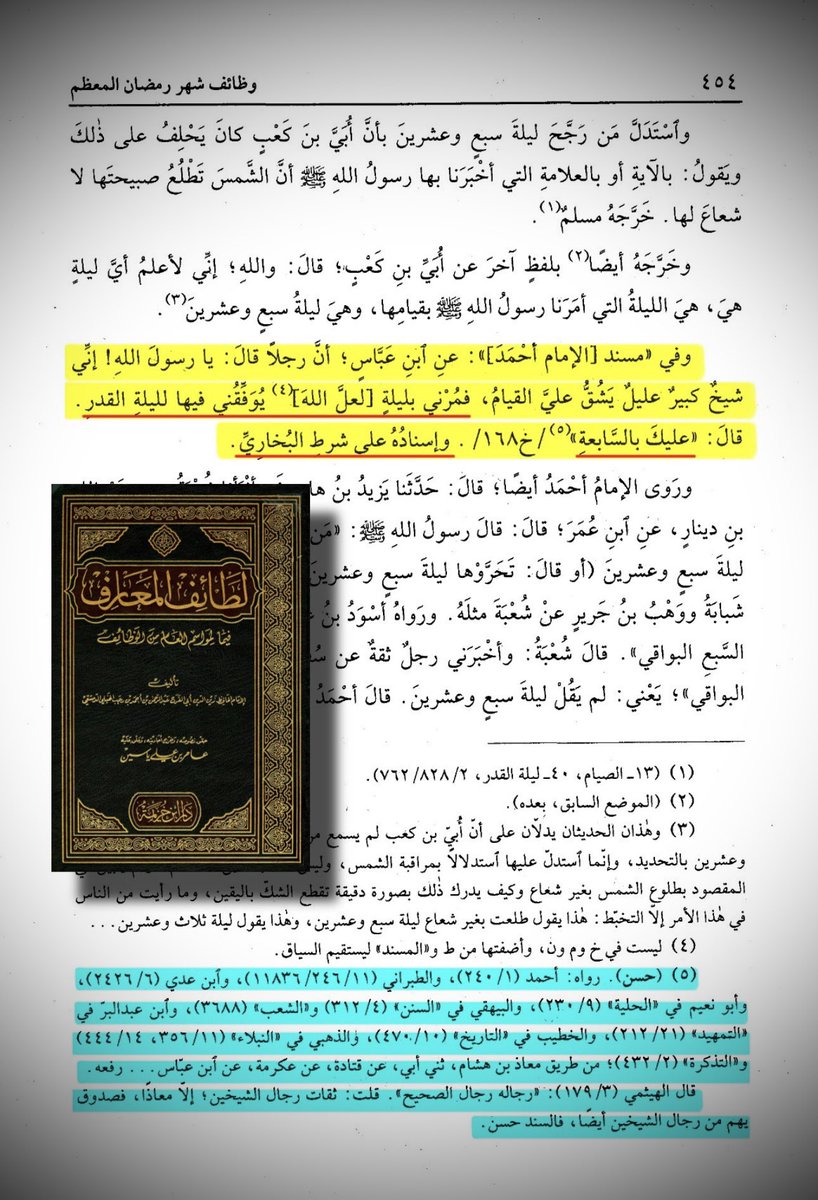 ٤٥٤
وظائف شهر رمضان المعظم
وٱسْتَدَلَّ مَن رَجَّحَ ليلةَ سبعٍ وعشرينَ بأنَّ أُبَيَّ بنَ كَعْبٍ كانَ يَحْلِفُ على ذٰلكَ
ويَقولُ: بالآيةِ أو بالعلامةِ التي أخْبَرَنا بها رسولُ اللهِ ﷺ أنَّ الشَّمسَ تَطْلُعُ صبيحتَها لا
شعاعَ لها. خَرَّجَهُ مسلمٌ(١).
وخَرَّجَهُ أيضًا(٢) بلفظٍ آخرَ عن أُبَيِّ بنِ كَعْبٍ؛ قالَ: واللهِ؛ إنِّي لأعلمُ أيَّ ليلةٍ
هيَ، هيَ الليلةُ التي أمَرَنا رسولُ اللهِ ﷺ بقيامِها، وهيَ ليلةُ سبعٍ وعشرينَ(٣).
وفي «مسند [الإمام أحْمَدَ]»: عنِ ٱبنِ عَبَّاسٍ؛ أنَّ رجلًا قالَ: يا رسولَ اللهِ! إنِّي
شيخٌ كبيرٌ عليلٌ يَشُقُّ عليَّ القيامُ، فمُرْني بليلةٍ [لعلَّ اللهَ](٤) يُوَفِّقُني فيها لليلةِ القدرِ.
قالَ: «عليكَ بالسَّابعةِ»(٥)/خ١٦٨/. وإسنادُهُ على شرطِ البُخاريِّ.
ورَوى الإمامُ أحْمَدُ أيضًا؛ قالَ: حَدَّثَنا يَزيدُ بنُ
بنِ دينارٍ، عنِ ٱبنِ عُمَرَ؛ قالَ: قالَ رسولُ اللهِ ﷺ: «مَن
ليلةَ سبعٍ وعشرينَ (أو قالَ: تَحَرَّوْها ليلةَ سبعٍ وعشرينَ
شَبابَةُ ووَهْبُ بنُ جَريرٍ عنْ شُعْبَةَ مثلَهُ. ورَواهُ أسْوَدُ بنُ
السَّبعِ البواقي». قالَ شُعْبَةُ: وأخْبَرَني رجلٌ ثقةٌ عن
البواقي»؛ يَعْني: لم يَقُلْ ليلةَ سبعٍ وعشرينَ. قالَ أحْمَدُ
لطائف المعارف
فيما لمواسم العام من الوظائف
تأليف
عامر بن علي ياسين
دار ابن خزيمة
(١) (١٣ـ الصيام، ٤٠ـ ليلة القدر، ٢/ ٨٢٨/ ٧٦٢).
(٢) (الموضع السابق، بعده).
(٣) وهٰذان الحديثان يدلّان على أنّ أُبيّ بن كعب لم يسمع
وعشرين بالتحديد، وإنّما ٱستدلّ عليها ٱستدلالًا بمراقبة الشمس،
المقصود بطلوع الشمس بغير شعاع وكيف يدرك ذلك بصورة دقيقة تقطع الشكّ باليقين، وما رأيت من الناس
في هٰذا الأمر إلّا التخبّط: هٰذا يقول طلعت بغير شعاع ليلة سبع وعشرين، وهٰذا يقول ليلة ثلاث وعشرين...
(٤) ليست في خ وم ون، وأضفتها من ط و«المسند» ليستقيم السياق.
(٥) (حسن). رواه: أحمد (١/ ٢٤٠)، والطبراني (١١/ ٢٤٦/ ١١٨٣٦)، وٱبن عدي (٦/ ٢٤٢٦)،
وأبو نعيم في «الحلية» (٩/ ٢٣٠)، والبيهقي في «السنن» (٤/ ٣١٢) و«الشعب» (٣٦٨٨)، وٱبن عبدالبرّ في
«التمهيد» (٢١/ ٢١٢)، والخطيب في «التاريخ» (١٠/ ٤٧٠)، والذهبي في «النبلاء» (١١/ ٣٥٦، ١٤/ ٤٤٤)
و«التذكرة» (٢/ ٤٣٢)؛ من طريق معاذ بن هشام، ثني أبي، عن قتادة، عن عكرمة، عن ٱبن عبّاس... رفعه.
قال الهيثمي (٣/ ١٧٩): «رجاله رجال الصحيح». قلت: ثقات رجال الشيخين؛ إلّا معاذًا، فصدوق
يهم من رجال الشيخين أيضًا، فالسند حسن.